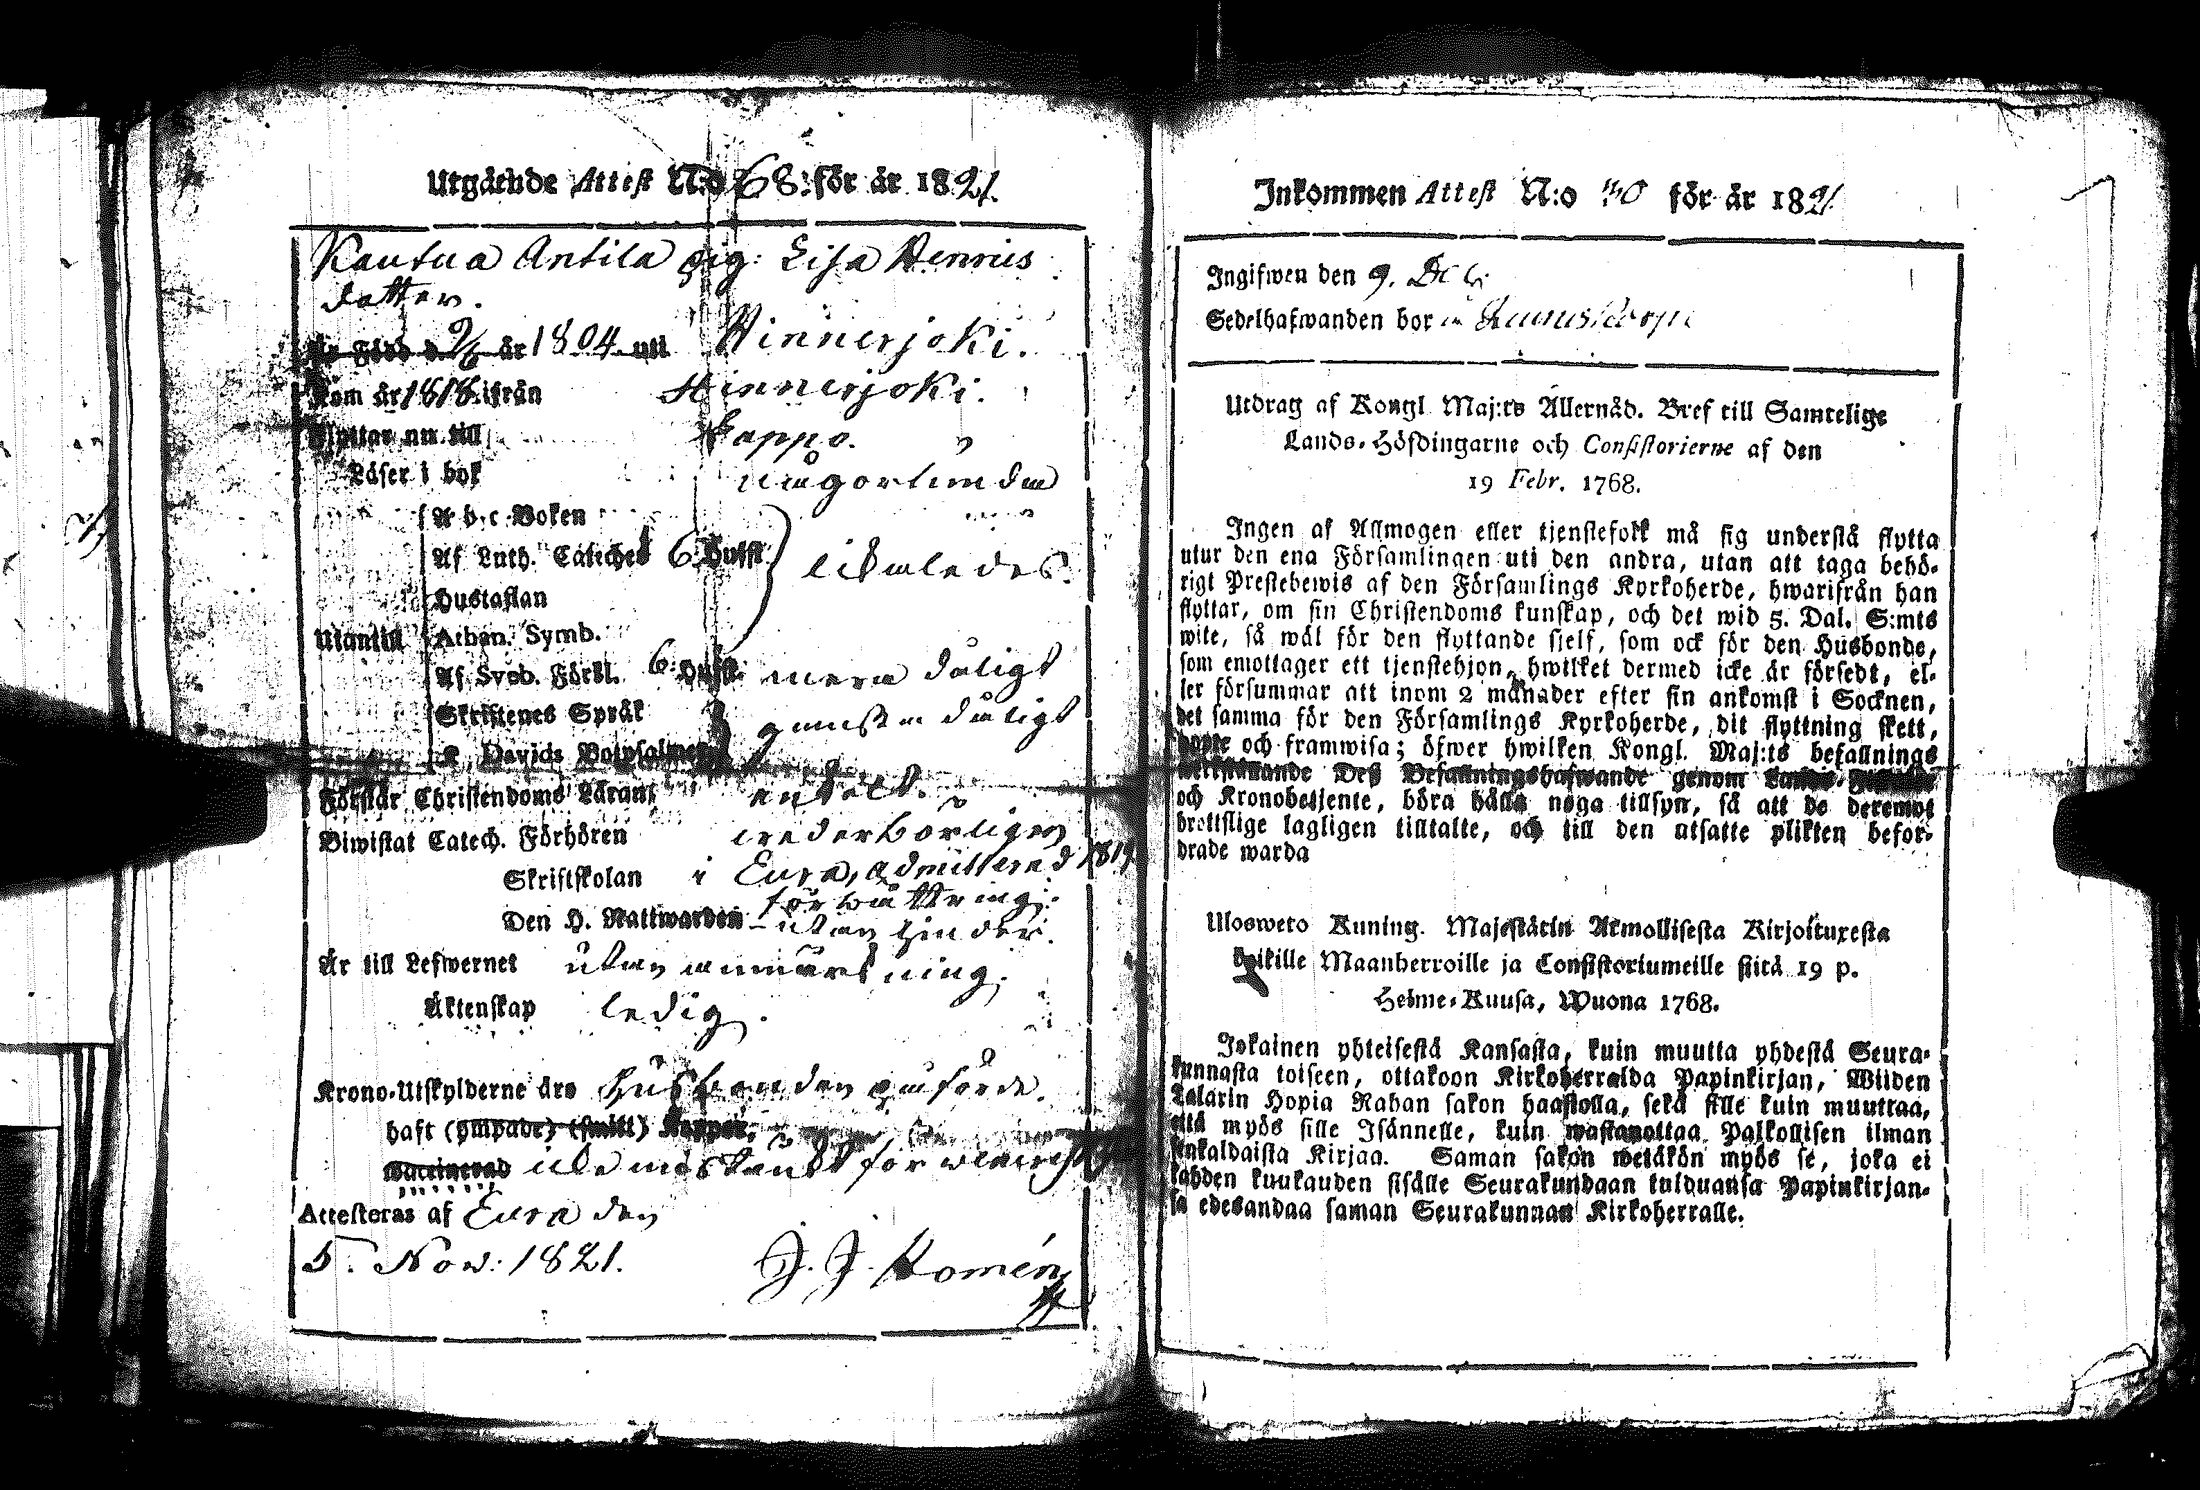 Utgående Attest N:o 68: för år 1821.
Kautua Antila pig: Lisa Henrics
dotter.
Är Född d. 9/6 år 1804 uti Hinnerjoki.
Kom år 1818 ifrån Hinnerjoki.
Flyttar nu till Lappo.
Läser i bok någorlunda
A b c Boken
Af Luth. Cateches 6 Hufst. likaledes.
Hustaflan
Utantill Athan. Symb.
Af Sveb. Förkl. 6 Hufst. mera dåligt
Skriftenes Språk ganska dåligt
K. Davids Botpsalmer
Förstår Christendoms Läran enkelt.
Biwistat Catech. Förhören wederbörligen
Skriftskolan i Eura, admitterad 1819
förbättring.
Den H. Nattwarden – utan hinder.
Är till Lefwernet utan anmärkning.
Äktenskap ledig.
Krono-Utskylderne äro Husbonden påförde.
haft (ympade) (smitt) Koppor,
vaccinerad icke misstänkt för
Attesteras af Eura den
5. Nov: 1821. J. J. Homén
Inkommen Attest N:o 30 för år 1821
Ingifwen den 9. Dec.
Sedelhafwanden bor
Utdrag af Kongl Maj:ts Allernåd. Bref till Samtelige
Lands-Höfdingarne och Consistorierne af den
19 Febr. 1768.
Ingen af Allmogen eller tjenstefolk må sig understå flytta
utur den ena Församlingen uti den andra, utan att taga behö-
rigt Prestebewis af den Församlings Kyrkoherde, hwarifrån han
flyttar, om sin Christendoms kunskap, och det wid 5. Dal. S:mts
wite, så wäl för den flyttande sjelf, som ock för den Husbonde,
som emottager ett tjenstehjon, hwilket dermed icke är försedt, el-
ler försummar att inom 2 månader efter sin ankomst i Socknen,
det samma för den Församlings Kyrkoherde, dit flyttning skett,
uppte och framwisa; öfwer hwilken Kongl. Maj:ts befallnings
werkställande Deß Befallningshafwande genom Lands-
och Kronobetjente, böra hålla noga tillsyn, så att de deremot
brottslige lagligen tilltalte, och till den utsatte plikten befor-
drade warda
Ulosweto Kuning. Majestätin Armollisesta Kirjoituxesta
kaikille Maanherroille ja Consistoriumeille siitä 19 p.
Helme-Kuusa, Wuona 1768.
Jokainen yhteisestä Kansasta, kuin muutta yhdestä Seura-
kunnasta toiseen, ottakoon Kirkoherralda Papinkirjan, Wiiden
Talarin Hopia Rahan sakon haastolla, sekä sille kuin muuttaa,
että myös sille Isännelle, kuin wastanottaa Palkollisen ilman
senkaldaista Kirjaa. Saman sakon wetäkön myös se, joka ei
kahden kuukauden sisälle Seurakundaan tulduansa Papinkirjan-
sa edesandaa saman Seurakunnan Kirkoherralle.